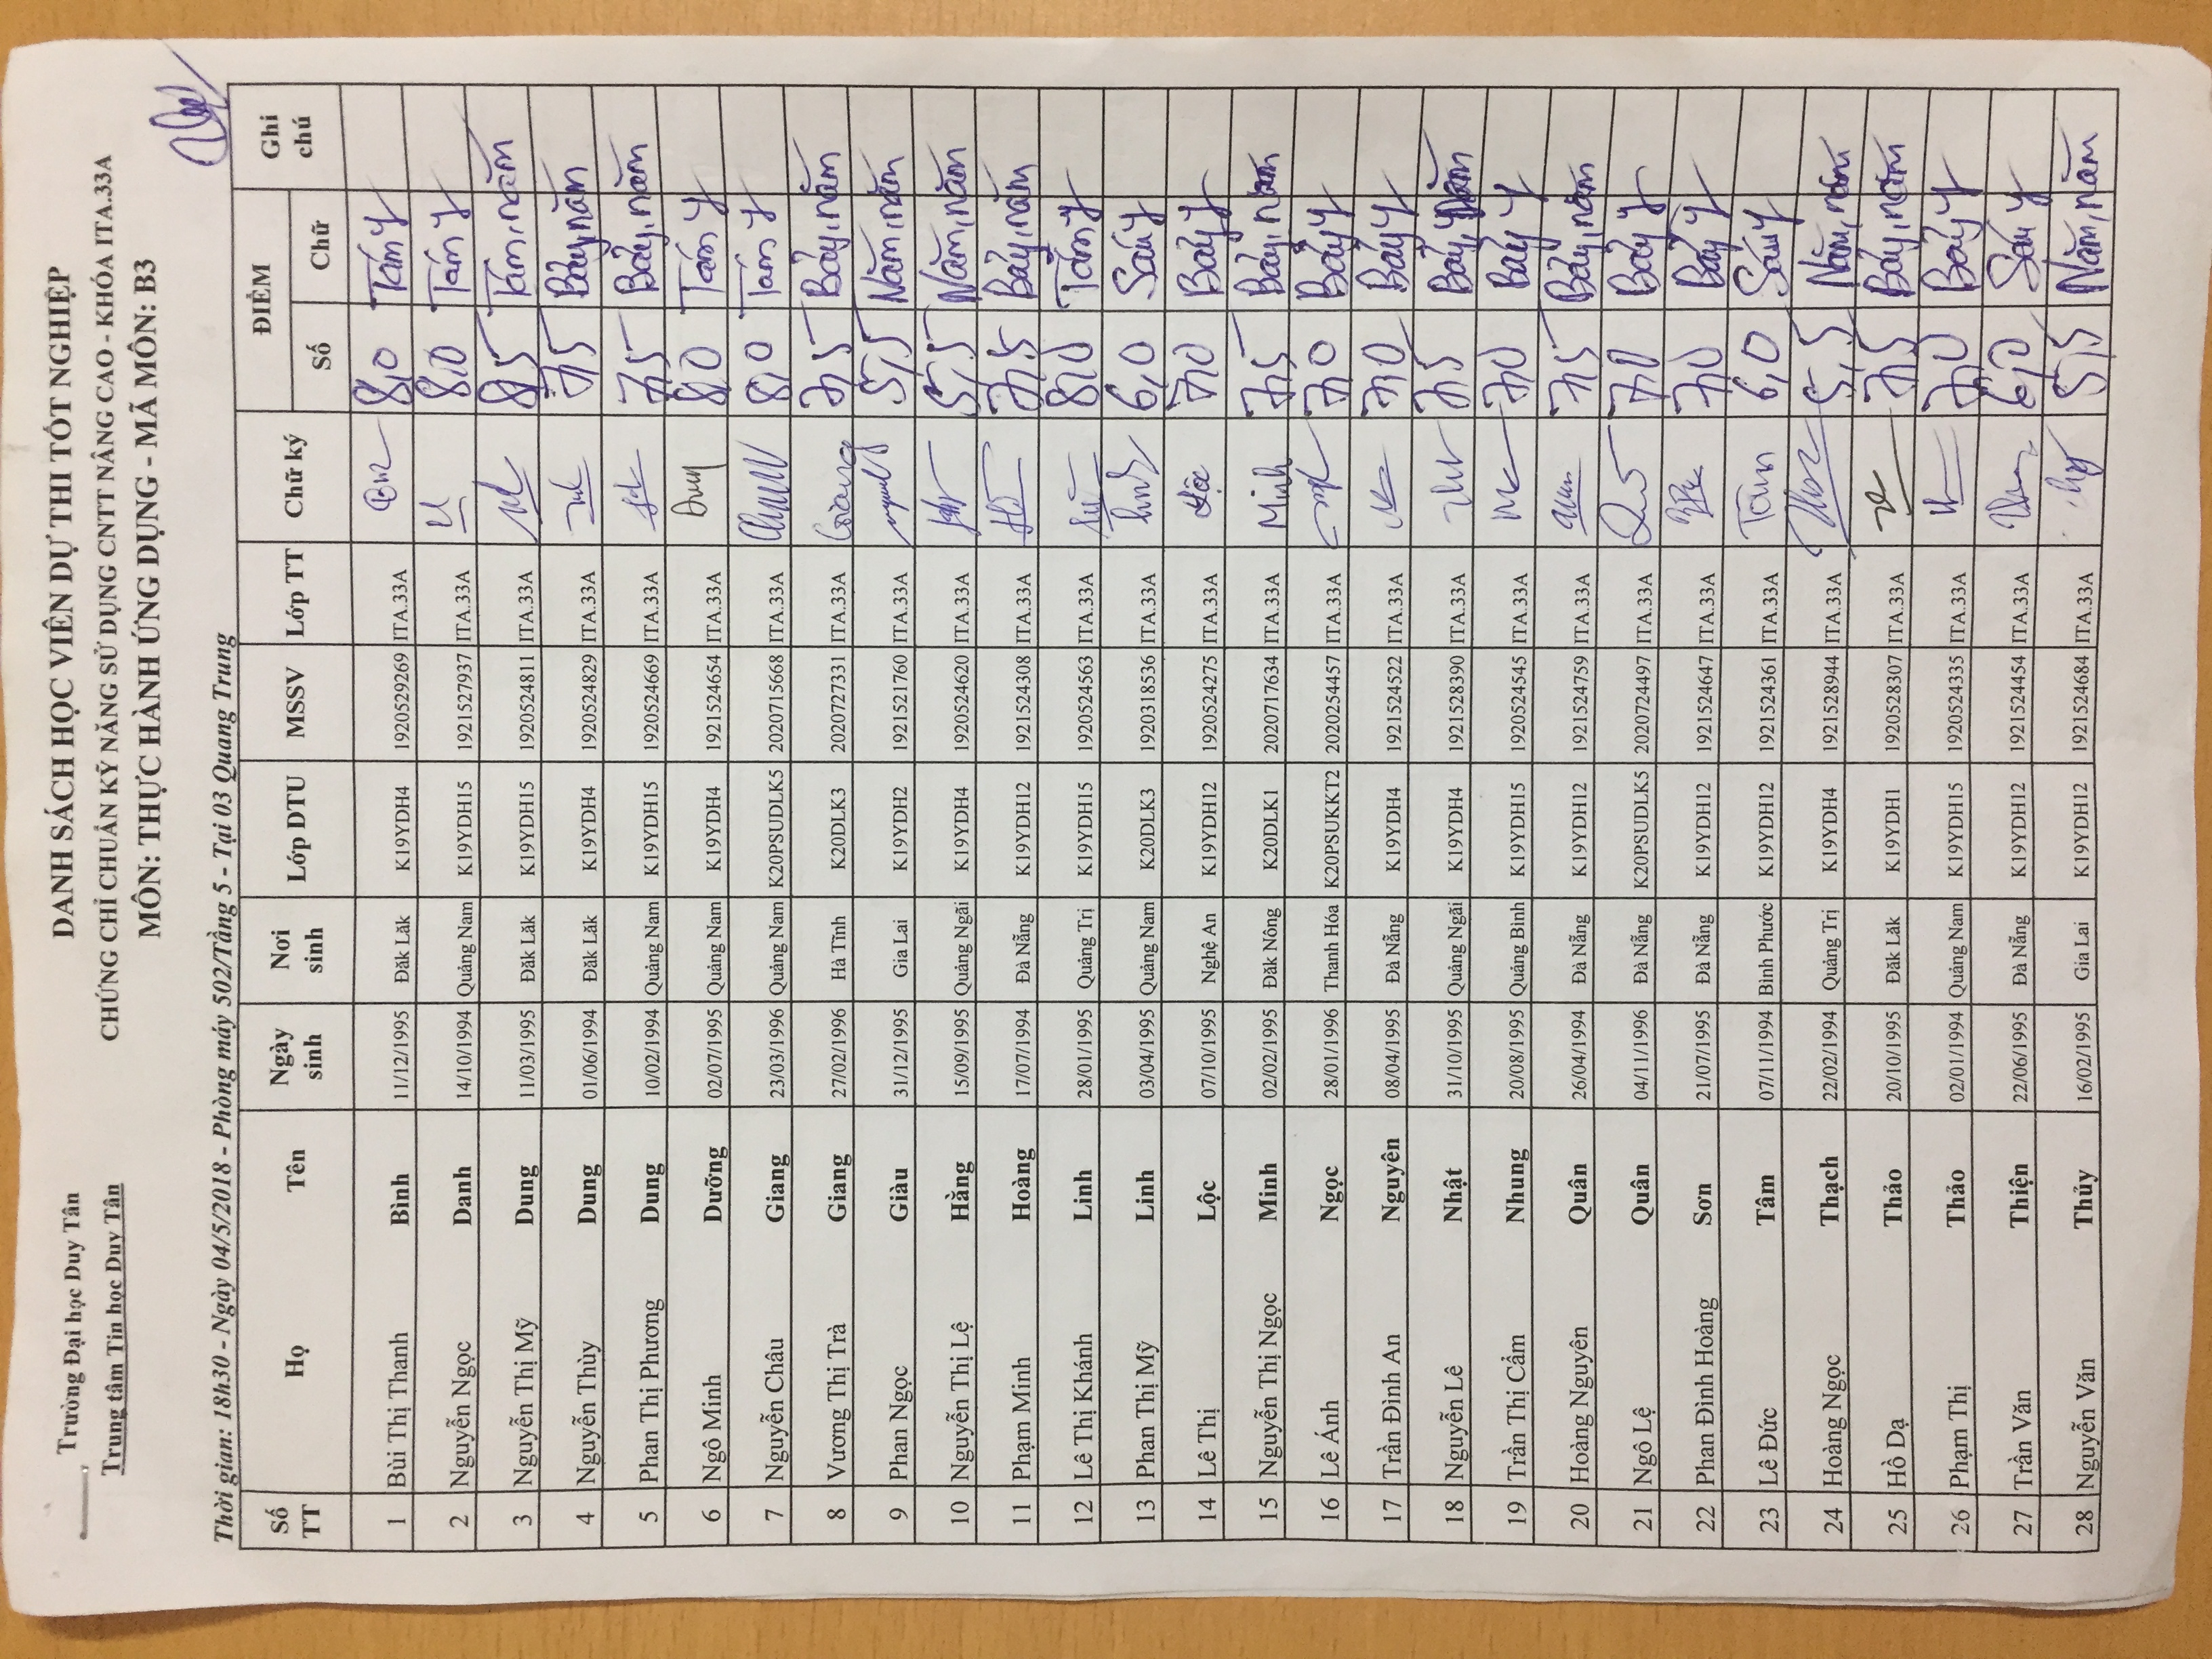 Trường Đại học Duy Tân
Trung tâm Tin học Duy Tân
DANH SÁCH HỌC VIÊN DỰ THI TỐT NGHIỆP
CHỨNG CHỈ CHUẨN KỸ NĂNG SỬ DỤNG CNTT NÂNG CAO - KHÓA ITA.33A
MÔN: THỰC HÀNH ỨNG DỤNG - MÃ MÔN: B3
Thời gian: 18h30 - Ngày 04/5/2018 - Phòng máy 502/Tầng 5 - Tại 03 Quang Trung
Số TT Họ Tên Ngày sinh Nơi sinh Lớp DTU MSSV Lớp TT Chữ ký ĐIỂM Ghi chú
Số Chữ
1 Bùi Thị Thanh Bình 11/12/1995 Đăk Lăk K19YDH4 1920529269 ITA.33A 8,0 Tám y
2 Nguyễn Ngọc Danh 14/10/1994 Quảng Nam K19YDH15 1921527937 ITA.33A 8,0 Tám y
3 Nguyễn Thị Mỹ Dung 11/03/1995 Đăk Lăk K19YDH15 1920524811 ITA.33A 8,5 Tám, năm
4 Nguyễn Thùy Dung 01/06/1994 Đăk Lăk K19YDH4 1920524829 ITA.33A 7,5 Bảy, năm
5 Phan Thị Phương Dung 10/02/1994 Quảng Nam K19YDH15 1920524669 ITA.33A 7,5 Bảy, năm
6 Ngô Minh Dưỡng 02/07/1995 Quảng Nam K19YDH4 1921524654 ITA.33A 8,0 Tám y
7 Nguyễn Châu Giang 23/03/1996 Quảng Nam K20PSUDLK5 2020715668 ITA.33A 8,0 Tám y
8 Vương Thị Trà Giang 27/02/1996 Hà Tĩnh K20DLK3 2020727331 ITA.33A Giang 7,5 Bảy, năm
9 Phan Ngọc Giàu 31/12/1995 Gia Lai K19YDH2 1921521760 ITA.33A 5,5 Năm, năm
10 Nguyễn Thị Lệ Hằng 15/09/1995 Quảng Ngãi K19YDH4 1920524620 ITA.33A 5,5 Năm, năm
11 Phạm Minh Hoàng 17/07/1994 Đà Nẵng K19YDH12 1921524308 ITA.33A 7,5 Bảy, năm
12 Lê Thị Khánh Linh 28/01/1995 Quảng Trị K19YDH15 1920524563 ITA.33A 8,0 Tám y
13 Phan Thị Mỹ Linh 03/04/1995 Quảng Nam K20DLK3 1920318536 ITA.33A 6,0 Sáu y
14 Lê Thị Lộc 07/10/1995 Nghệ An K19YDH12 1920524275 ITA.33A Lộc 7,0 Bảy y
15 Nguyễn Thị Ngọc Minh 02/02/1995 Đăk Nông K20DLK1 2020717634 ITA.33A Minh 7,5 Bảy, năm
16 Lê Ánh Ngọc 28/01/1996 Thanh Hóa K20PSUKKT2 2020254457 ITA.33A 7,0 Bảy y
17 Trần Đình An Nguyên 08/04/1995 Đà Nẵng K19YDH4 1921524522 ITA.33A 7,0 Bảy y
18 Nguyễn Lê Nhật 31/10/1995 Quảng Ngãi K19YDH4 1921528390 ITA.33A 7,5 Bảy, năm
19 Trần Thị Cẩm Nhung 20/08/1995 Quảng Bình K19YDH15 1920524545 ITA.33A 7,0 Bảy y
20 Hoàng Nguyên Quân 26/04/1994 Đà Nẵng K19YDH12 1921524759 ITA.33A 7,5 Bảy, năm
21 Ngô Lệ Quân 04/11/1996 Đà Nẵng K20PSUDLK5 2020724497 ITA.33A 7,0 Bảy y
22 Phan Đình Hoàng Sơn 21/07/1995 Đà Nẵng K19YDH12 1921524647 ITA.33A 7,0 Bảy y
23 Lê Đức Tâm 07/11/1994 Bình Phước K19YDH12 1921524361 ITA.33A Tâm 6,0 Sáu y
24 Hoàng Ngọc Thạch 22/02/1994 Quảng Trị K19YDH4 1921528944 ITA.33A 5,5 Năm, năm
25 Hồ Dạ Thảo 20/10/1995 Đăk Lăk K19YDH1 1920528307 ITA.33A 7,5 Bảy, năm
26 Phạm Thị Thảo 02/01/1994 Quảng Nam K19YDH15 1920524335 ITA.33A 7,0 Bảy y
27 Trần Văn Thiện 22/06/1995 Đà Nẵng K19YDH12 1921524454 ITA.33A 6,0 Sáu y
28 Nguyễn Văn Thủy 16/02/1995 Gia Lai K19YDH12 1921524684 ITA.33A 5,5 Năm, năm